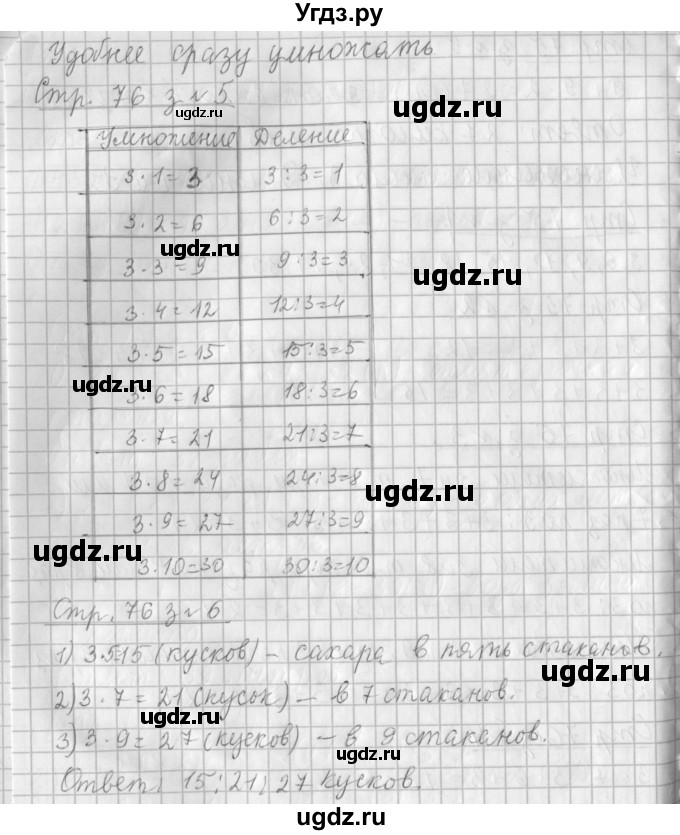 Угдз.ру
Удобнее сразу умножать
Стр. 76 з № 5
Умножение Деление
3·1=3 3:3=1
3·2=6 6:3=2
3·3=9 9:3=3
3·4=12 12:3=4
3·5=15 15:3=5
3·6=18 18:3=6
3·7=21 21:3=7
3·8=24 24:3=8
3·9=27 27:3=9
3·10=30 30:3=10
Стр. 76 з № 6
1) 3·5=15 (кусков) – сахара в пять стаканов.
2) 3·7=21 (кусок) – в 7 стаканов.
3) 3·9=27 (кусков) – в 9 стаканов.
Ответ: 15; 21; 27 кусков.
ugdz.ru
ugdz.ru
ugdz.ru
ugdz.ru
ugdz.ru
ugdz.ru
ugdz.ru
ugdz.ru
ugdz.ru
ugdz.ru